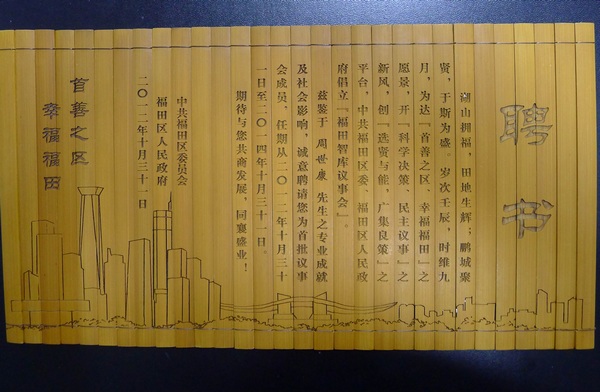 聘书
湖山拥福，田地生辉；鹏城聚
贤，于斯为盛。岁次壬辰，时维九
月，为达『首善之区、幸福福田』之
愿景，开『科学决策、民主议事』之
新风，创『选贤与能，广集良策』之
平台，中共福田区委、福田区人民政
府倡立『福田智库议事会』。
兹鉴于周世康先生之专业成就
及社会影响，诚意聘请您为首批议事
会成员，任期从二〇一二年十月三十
一日至二〇一四年十月三十一日。
期待与您共商发展，同襄盛业！
中共福田区委员会
福田区人民政府
二〇一二年十月三十一日
首善之区
幸福福田